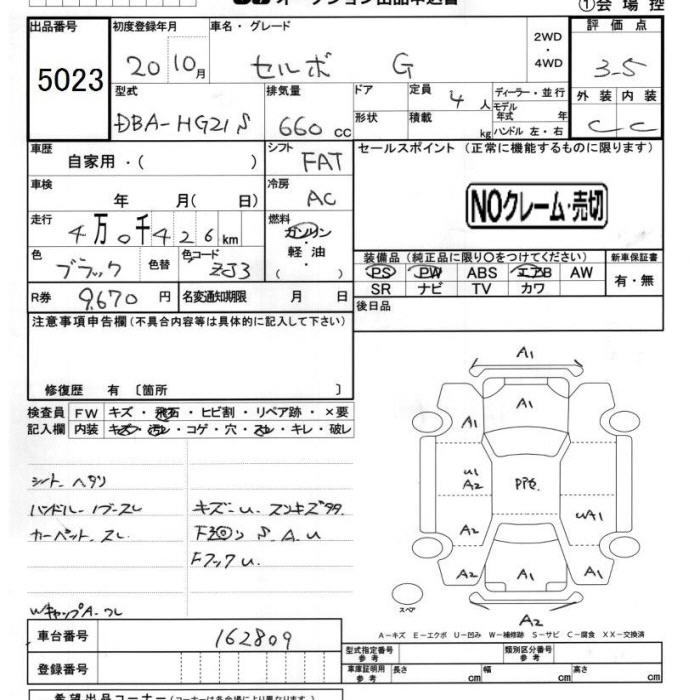 オークション出品申込書
①会場控
出品番号 5023
初度登録年月 20 10月
車名・グレード セルボ G
2WD・4WD
評価点 3-5
型式 DBA-HG21S
排気量 660 cc
ドア
形状
定員 4人
積載 kg
ディーラー・並行
モデル年式 年
ハンドル 左・右
外装 C 内装 C
車歴 自家用・( )
シフト FAT
セールスポイント (正常に機能するものに限ります)
NOクレーム・売切
車検 年 月( 日)
冷房 AC
走行 4万0千426km
燃料 ガソリン・軽油・( )
色 ブラック 色替 色コード ZJ3
装備品 (純正品に限り○をつけてください) 新車保証書
PS PW ABS エアB AW 有・無
SR ナビ TV カワ
R券 9,670円 名変通知期限 月 日
後日品
注意事項申告欄(不具合内容等は具体的に記入して下さい)
修復歴 有 〔箇所 〕
検査員 FW キズ・飛石・ヒビ割・リペア跡・×要
記入欄 内装 キズ・汚レ・コゲ・穴・スレ・キレ・破レ
シート ヘタリ
ハンドル
スレ
キズ-U.
カーペット.スレ
S.A.U
Fフックu.
WキャップA.
A1
A1
A1
U1
A2
P
UA1
A2
A2
A1
A1
スペア
A2
A-キズ E-エクボ U-凹み W-補修跡 S-サビ C-腐食 XX-交換済
車台番号 162809
登録番号
型式指定番号 参考 類別区分番号 参考
車庫証明用 参考 長さ cm 幅 cm 高さ cm
希望出品コーナー(コーナーは各会場により異なります)